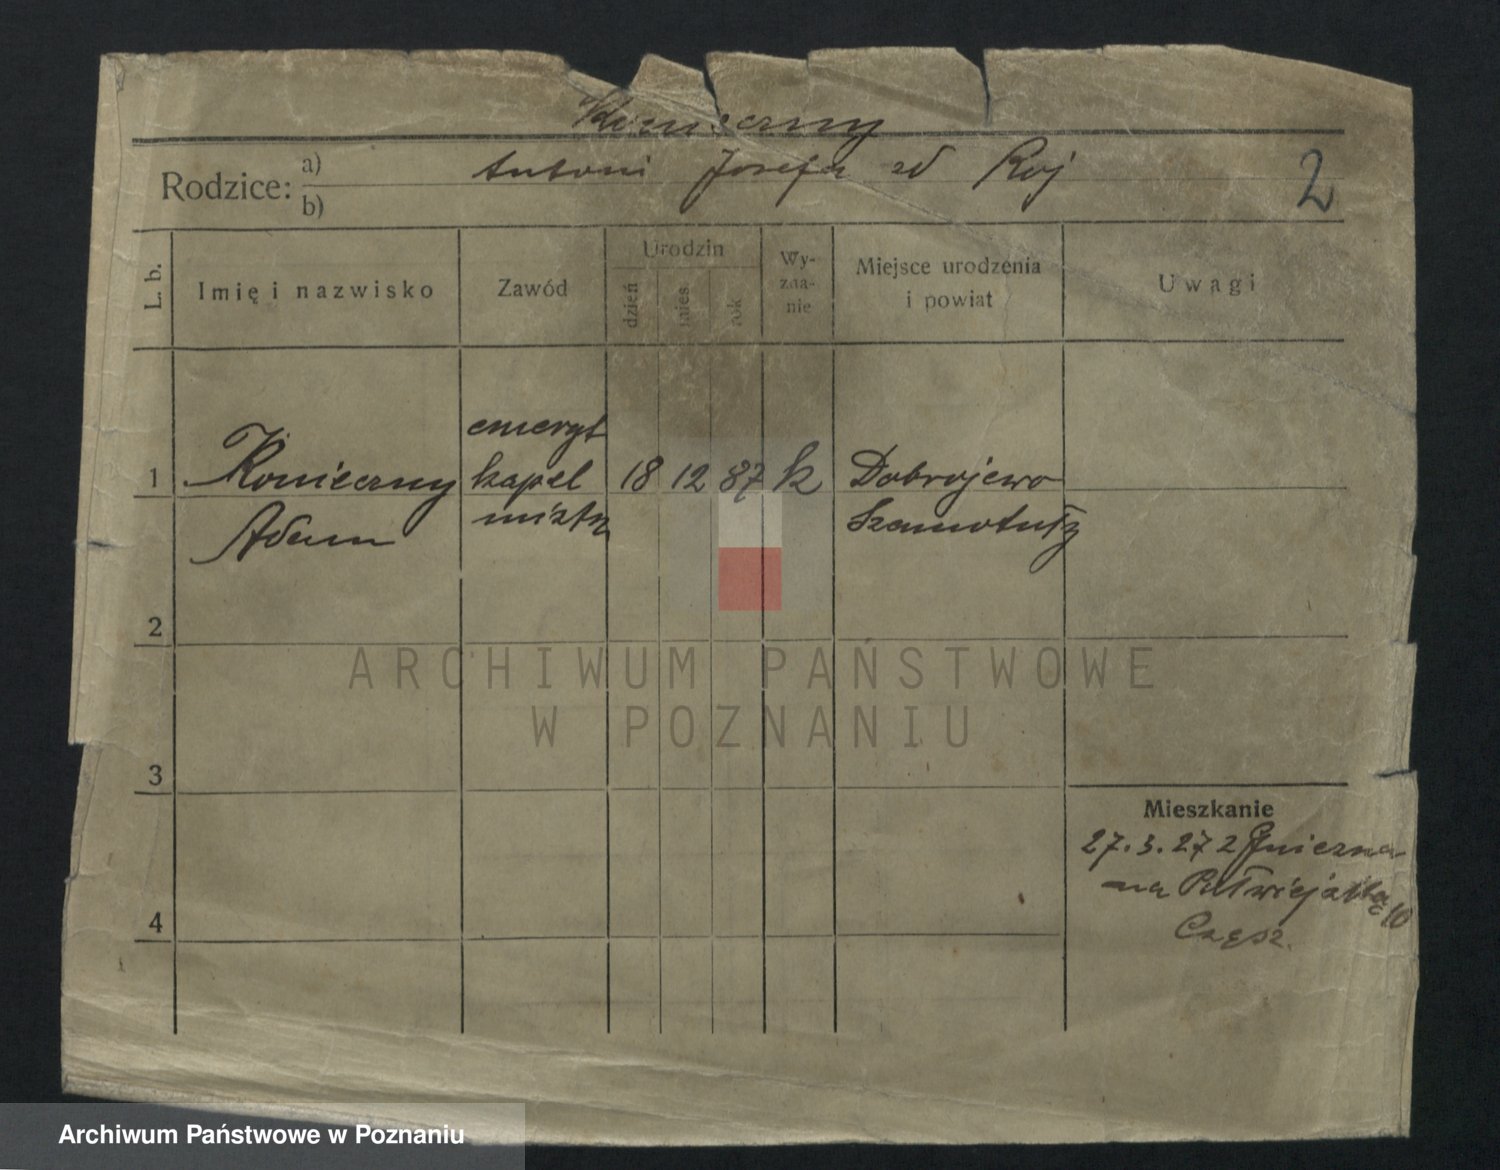 Konieczny
Rodzice: a) b)
Antoni Józefa zd Roj
2
L. b.
Imię i nazwisko
Zawód
Urodzin
dzień
mies.
rok
Wy-
zna-
nie
Miejsce urodzenia
i powiat
Uwagi
emeryt
1 Konieczny kapel 18 12 87 k Dobrojewo
Adam mistrz Szamotuły
2
ARCHIWUM PAŃSTWOWE
W POZNANIU
3
Mieszkanie
27.3.27 z Gniezna
na 10
4
Archiwum Państwowe w Poznaniu